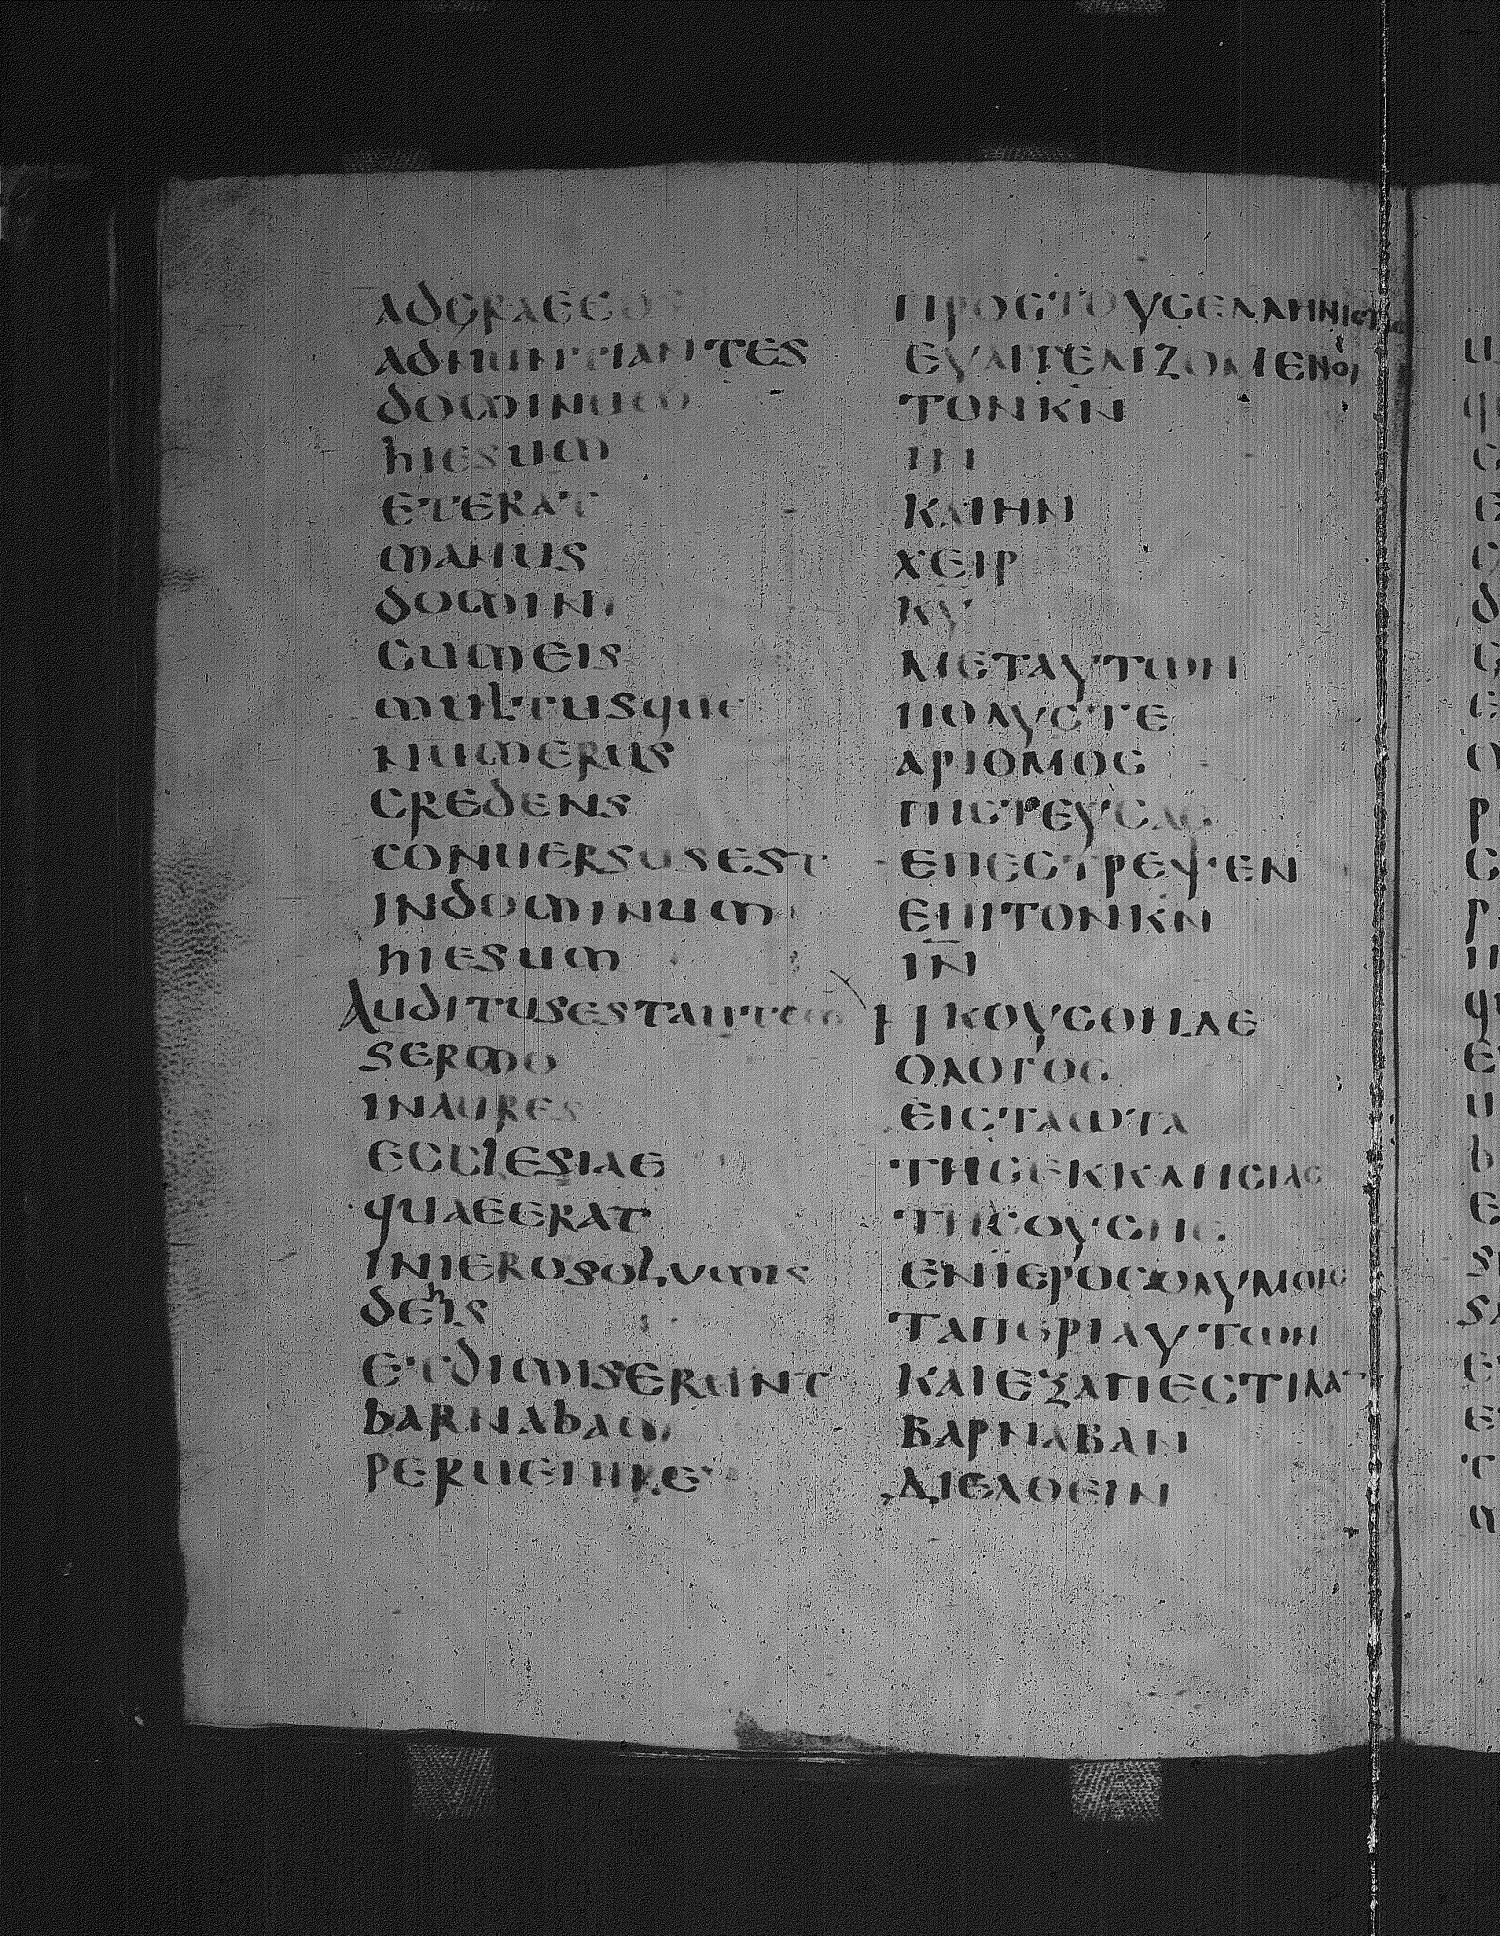 adgraecos
adnuntiantes
dominum
hiesum
eterat
manus
domini
cumeis
multusque
numerus
credens
conuersusest
indominum
hiesum
Auditusestautem
sermo
inaures
ecclesiae
quaeerat
inierosolymis
dehis
etdimiserunt
barnabam
peruenire
ΠΡΟСΤΟΥСΕΛΛΗΝΙСΤΑС
ΕΥΑΓΓΕΛΙΖΟΜΕΝΟΙ
ΤΟΝΚ̅Ν̅
Ι̅Ν̅
ΚΑΙΗΝ
ΧΕΙΡ
Κ̅Υ̅
ΜΕΤΑΥΤΩΝ
ΠΟΛΥСΤΕ
ΑΡΙΘΜΟС
ΠΙСΤΕΥСΑС
ΕΠΕСΤΡΕΨΕΝ
ΕΠΙΤΟΝΚ̅Ν̅
Ι̅Ν̅
ΗΚΟΥСΘΗΔΕ
ΟΛΟΓΟС
ΕΙСΤΑΩΤΑ
ΤΗСΕΚΚΛΗСΙΑС
ΤΗСΟΥСΗС
ΕΝΙΕΡΟСΟΛΥΜΟΙС
ΤΑΠΕΡΙΑΥΤΩΝ
ΚΑΙΕΞΑΠΕСΤΙΛΑ
ΒΑΡΝΑΒΑΝ
ΔΙΕΛΘΕΙΝ